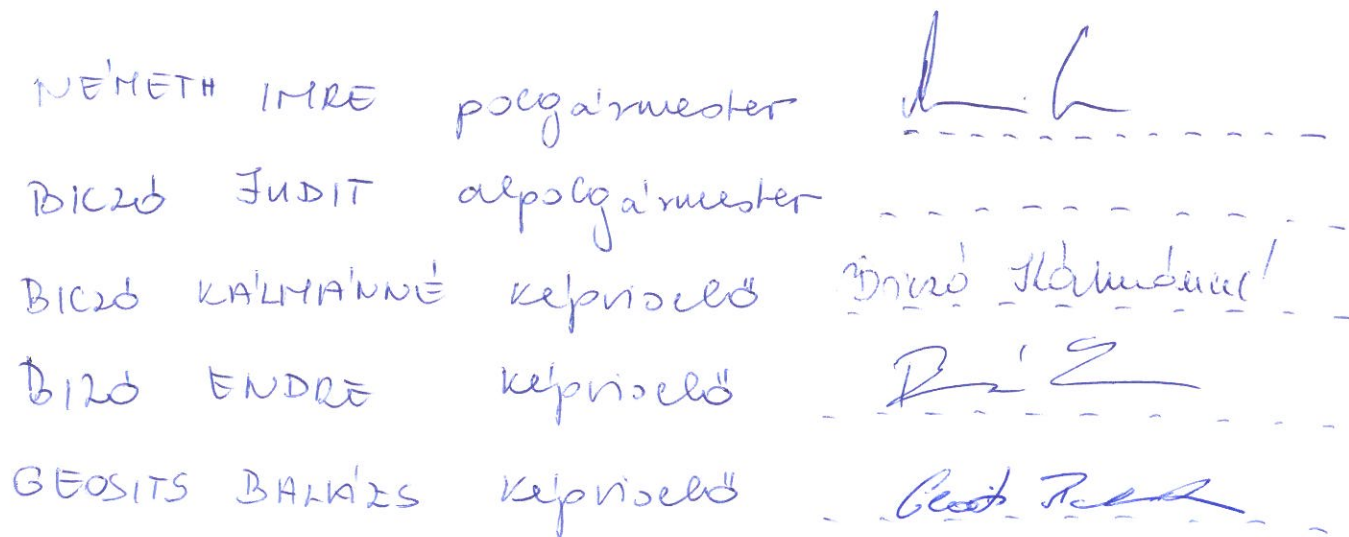 NÉMETH IMRE polgármester
BICZÓ JUDIT alpolgármester
BICZÓ KÁLMÁNNÉ képviselő Biczó Kálmánné
BIZÓ ENDRE képviselő
GEOSITS BALÁZS képviselő